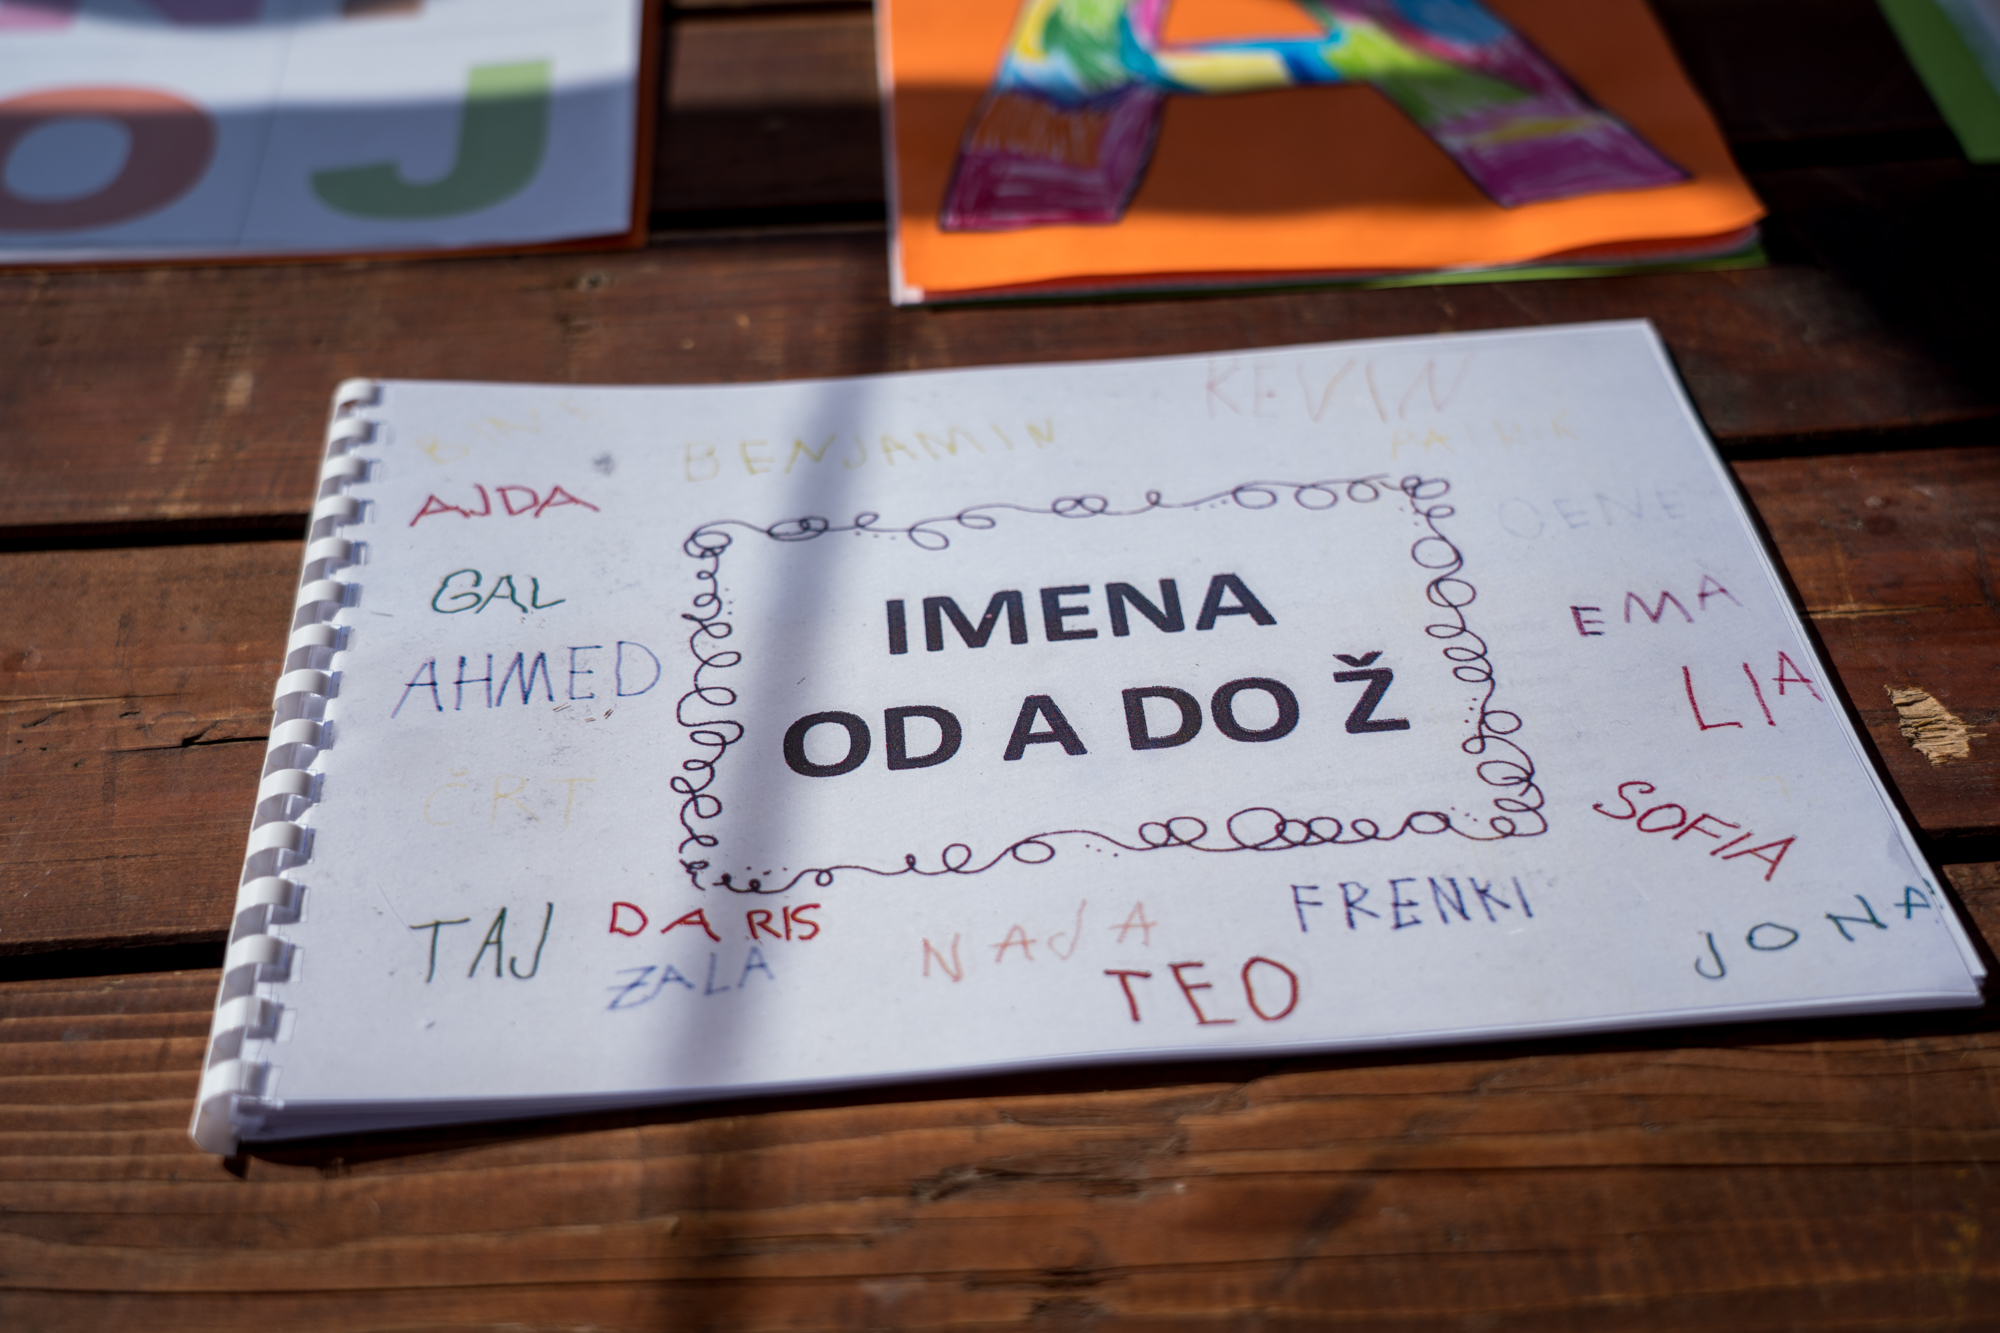 O J
A
KEVIN
BENJAMIN
AJDA
GAL
AHMED
ČRT
IMENA
OD A DO Ž
EMA
LIA
SOFIA
JONA
TAJ
DARIS
ZALA
NAJA
TEO
FRENKI